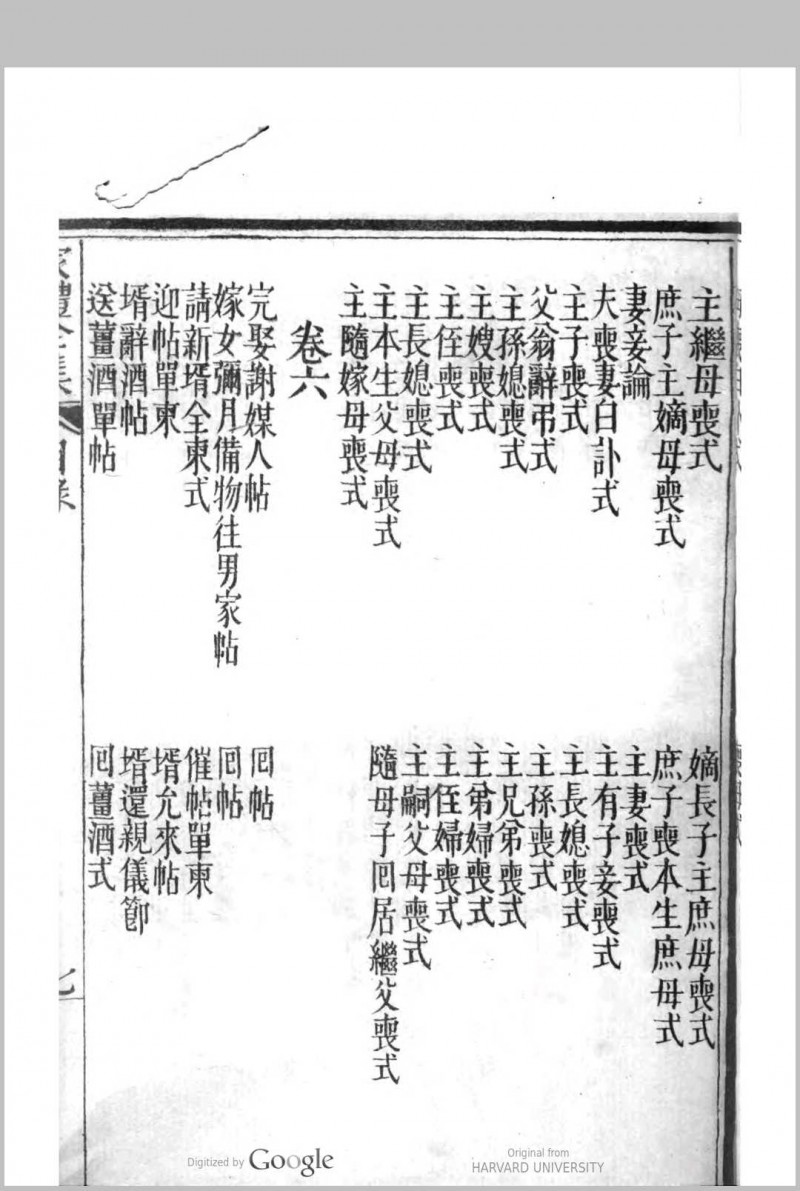 主繼母喪式　嫡長子主庶母喪式
庶子主嫡母喪式　庶子喪本生庶母式
妻妾論　主妻喪式
夫喪妻白訃式　主有子妾喪式
主子喪式　主長媳喪式
父翁辭弔式　主孫喪式
主孫媳喪式　主兄弟喪式
主嫂喪式　主弟婦喪式
主侄喪式　主侄婦喪式
主長媳喪式　主嗣父母喪式
主本生父母喪式　隨母子囘居繼父喪式
主隨嫁母喪式
卷六
完娶謝媒人帖　囘帖
嫁女彌月備物往男家帖　囘帖
請新壻全柬式　催帖單柬
迎帖單柬　壻允來帖
壻辭酒帖　壻還親儀節
送薑酒單帖　囘薑酒式
家禮全集 目錄
Digitized by Google
Original from
HARVARD UNIVERSITY